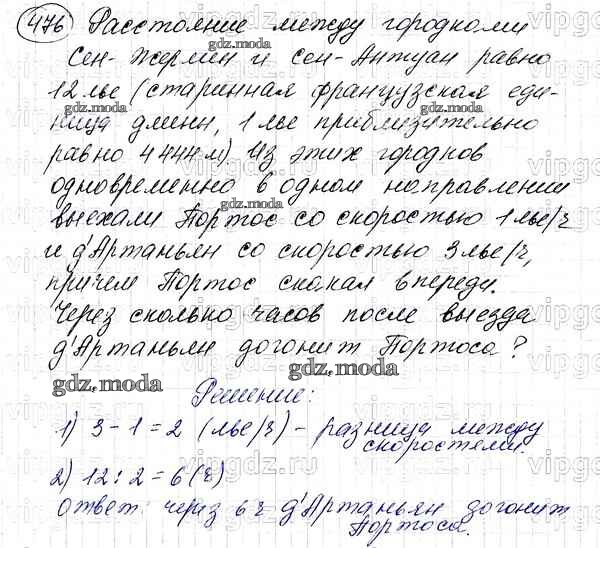 476 Расстояние между городками
Сен-Жермен и Сен-Антуан равно
12 лье (старинная французская еди-
ница длины, 1 лье приблизительно
равно 4 444 м) Из этих городков
одновременно в одном направлении
выехали Портос со скоростью 1 лье/ч
и д'Артаньян со скоростью 3 лье/ч,
причем Портос скакал впереди.
Через сколько часов после выезда
д'Артаньян догонит Портоса?
Решение:
1) 3 - 1 = 2 (лье/ч) - разница между
скоростями.
2) 12 : 2 = 6 (ч)
Ответ: через 6 ч д'Артаньян догонит
Портоса.
gdz.moda
gdz.moda
gdz.moda
gdz.moda
gdz.moda
gdz.moda
gdz.moda
vipgdz.ru